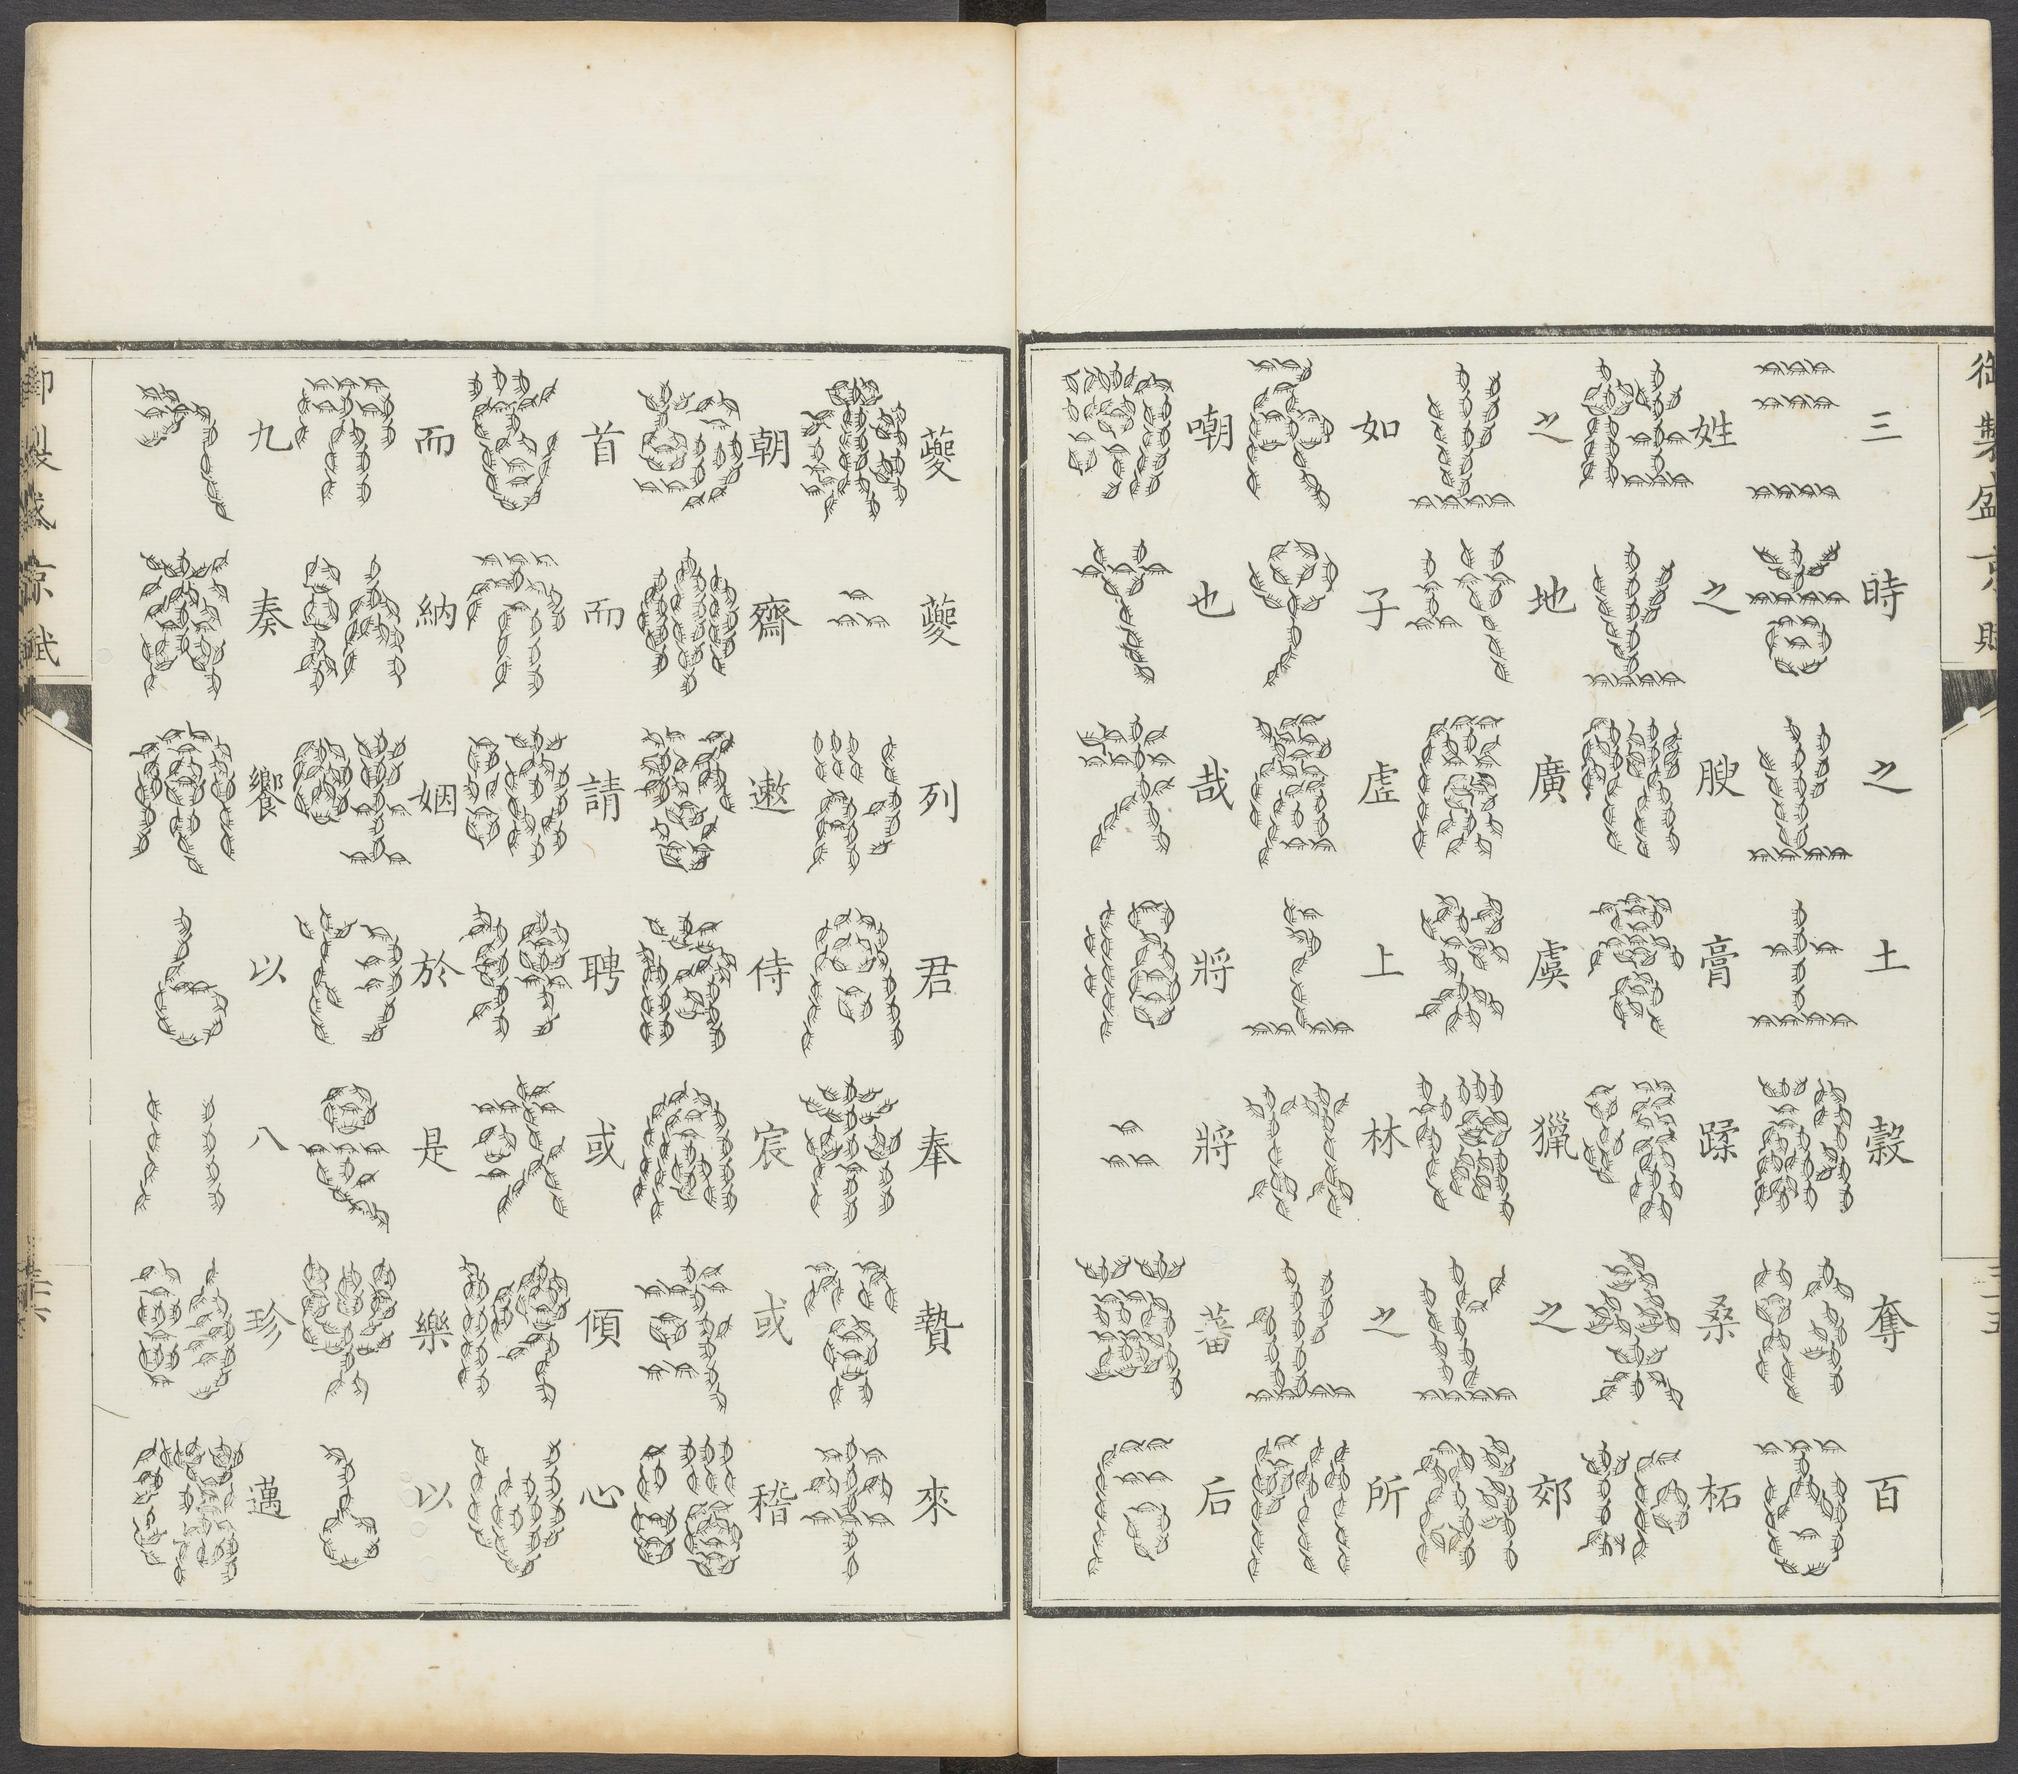 御製盛京賦
三十五
三時之土穀奪百
姓之腴膏蹂桑柘
之地廣虞獵之郊
如子虛上林之所
嘲也哉將將蕃后
夔夔列君奉贄來
朝齋遫侍宸或稽
首而請聘或傾心
而納姻於是樂以
九奏饗以八珍邁
御製盛京賦
三十六